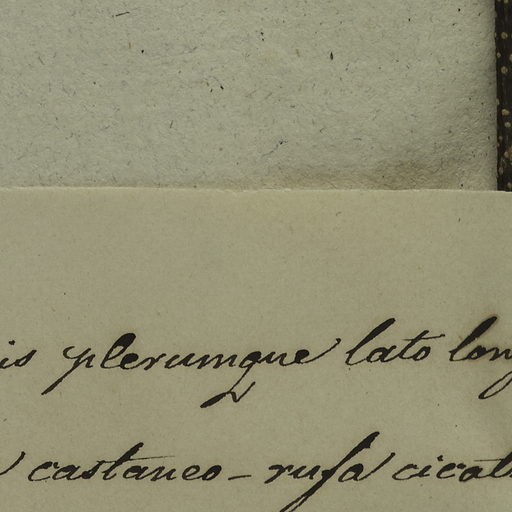 is plerumque lato lon
castaneo-rufa cicat